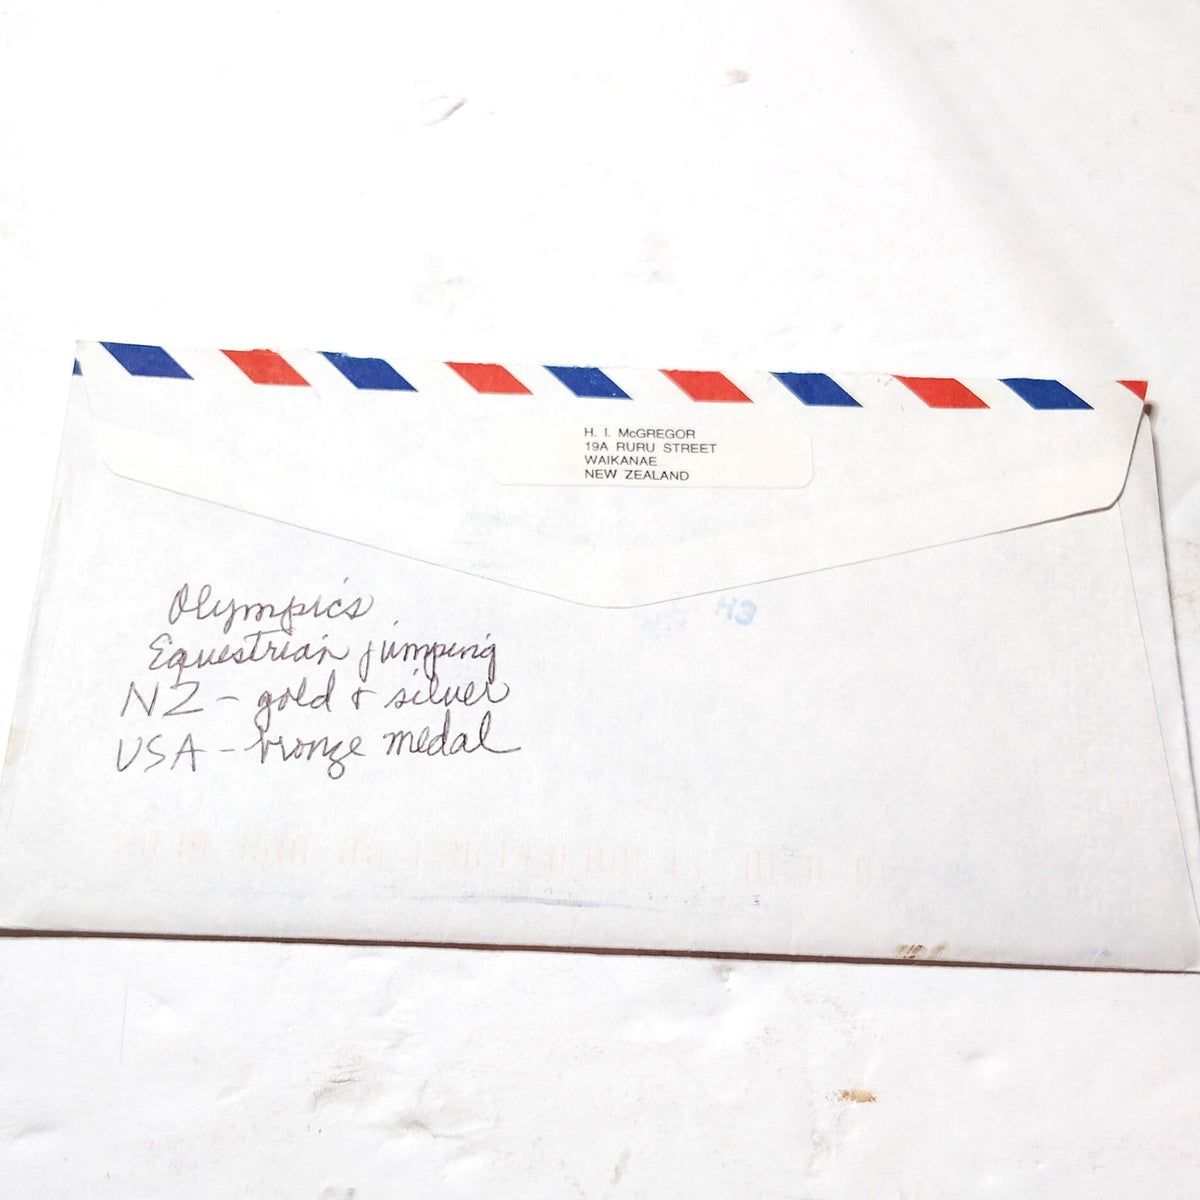 H. I. McGREGOR
19A RURU STREET
WAIKANAE
NEW ZEALAND
Olympics
Equestrian jumping
NZ - gold & silver
USA - bronze medal